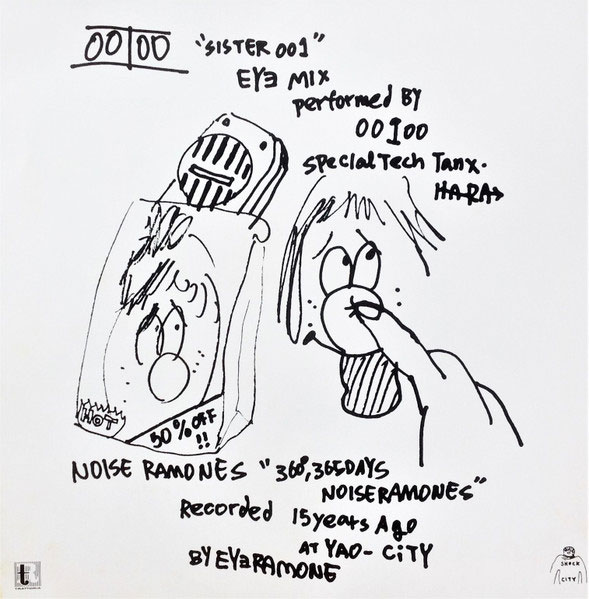 00|00 "SISTER 001"
EYƎ MIX
performed BY
00I00
Special Tech Tanx.
HARA
HOT
50% OFF
!!
NOISE RAMONES "360°, 365DAYS
NOISERAMONES"
Recorded 15 years Ago
AT YAO-CITY
BY EYƎRAMONE
t
TRATTORIA
SHOCK
CITY